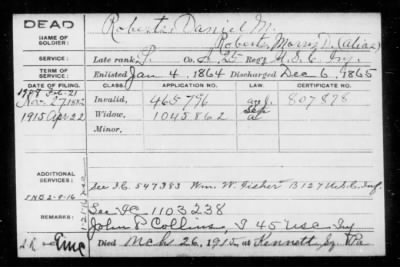 DEAD
Roberts, Daniel M.
NAME OF SOLDIER:
Roberts, Morris D. (alias)
SERVICE: Late rank, P. Co. 25 Reg't U.S.C. Inf.
TERM OF SERVICE: Enlisted Jan 4, 1864 Discharged Dec 6, 1865
DATE OF FILING. CLASS. APPLICATION NO. CERTIFICATE NO.
Invalid, 465796 807878
1915 Apr 22 Widow, 1045862
Minor,
ADDITIONAL SERVICES:
See I.C. 547383 Wm. W. Fisher B 127 U.S.C. Inf.
REMARKS: See IC 1103238
John P Collins, I 45 USC Inf
Died Mch 26, 1915, at Kennett Sq Pa